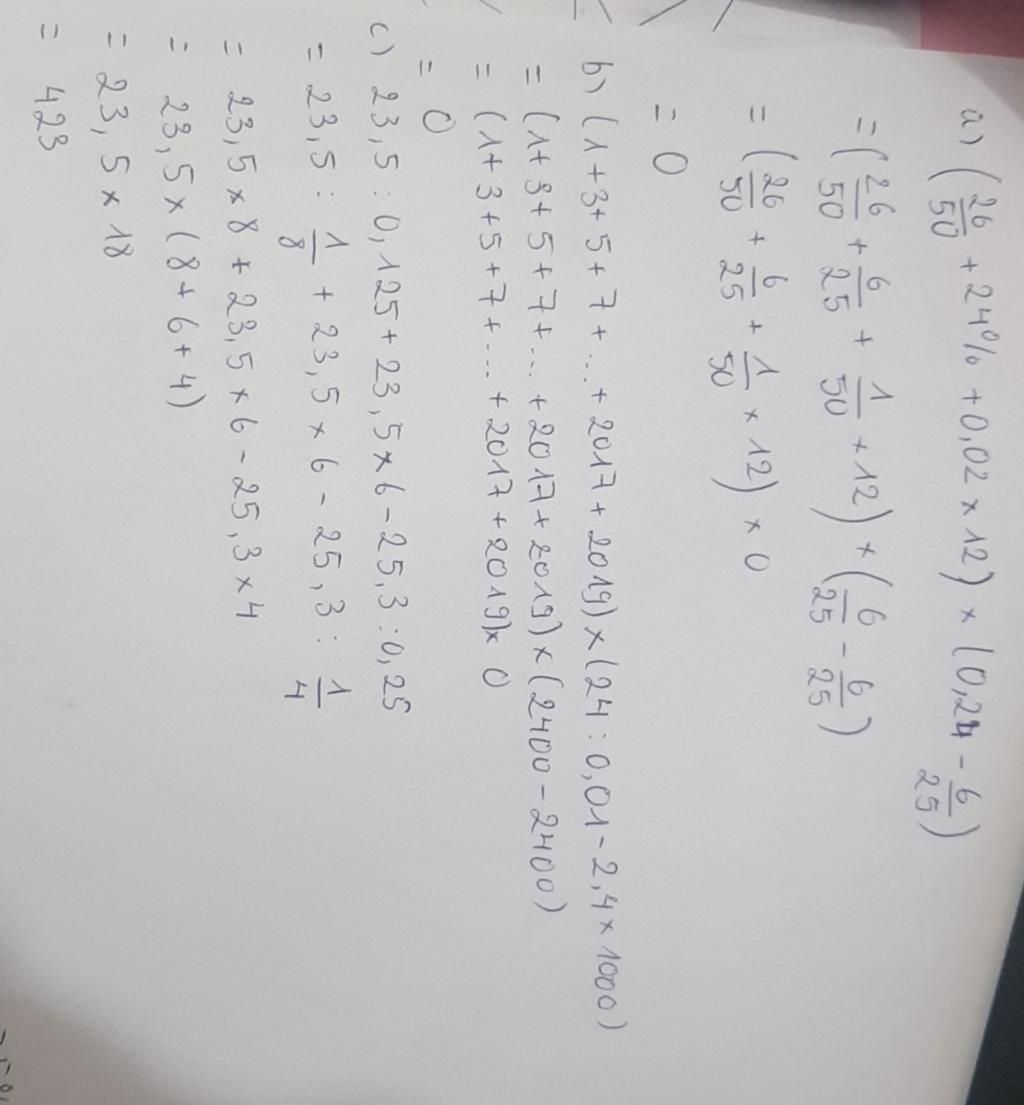 a) (26/50 + 24% + 0,02 × 12) × (0,24 - 6/25)
= (26/50 + 6/25 + 1/50 × 12) × (6/25 - 6/25)
= (26/50 + 6/25 + 1/50 × 12) × 0
= 0
b) (1 + 3 + 5 + 7 + ... + 2017 + 2019) × (24 : 0,01 - 2,4 × 1000)
= (1 + 3 + 5 + 7 + ... + 2017 + 2019) × (2400 - 2400)
= (1 + 3 + 5 + 7 + ... + 2017 + 2019) × 0
= 0
c) 23,5 : 0,125 + 23,5 × 6 - 25,3 : 0,25
= 23,5 : 1/8 + 23,5 × 6 - 25,3 : 1/4
= 23,5 × 8 + 23,5 × 6 - 25,3 × 4
= 23,5 × (8 + 6 + 4)
= 23,5 × 18
= 423